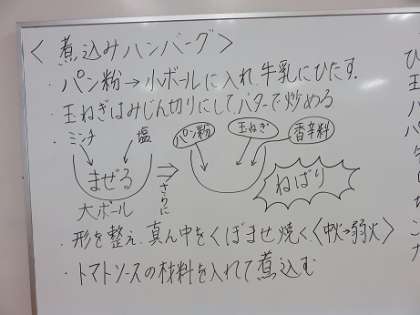 〈煮込みハンバーグ〉
・パン粉→小ボールに入れ、牛乳にひたす。
・玉ねぎはみじん切りにして、バターで炒める
・ミンチ 塩 パン粉 玉ねぎ 香辛料
まぜる ⇒ さらに ねばり
大ボール
・形を整え、真ん中をくぼませ焼く、〈中火→弱火〉
・トマトソースの材料を入れて煮込む